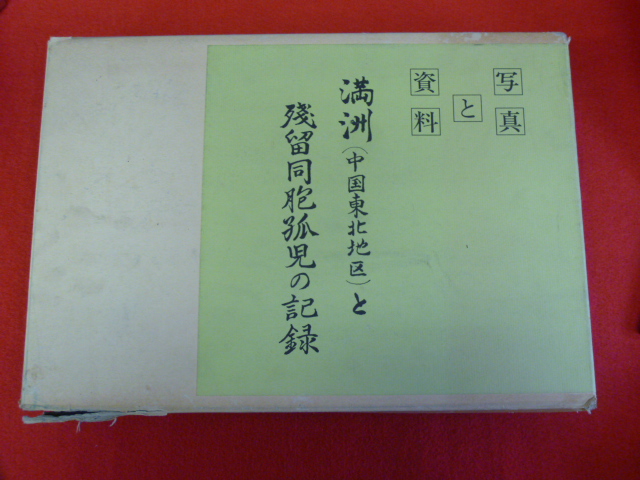 写真
と
資料
満洲(中国東北地区)と
殘留同胞孤児の記録